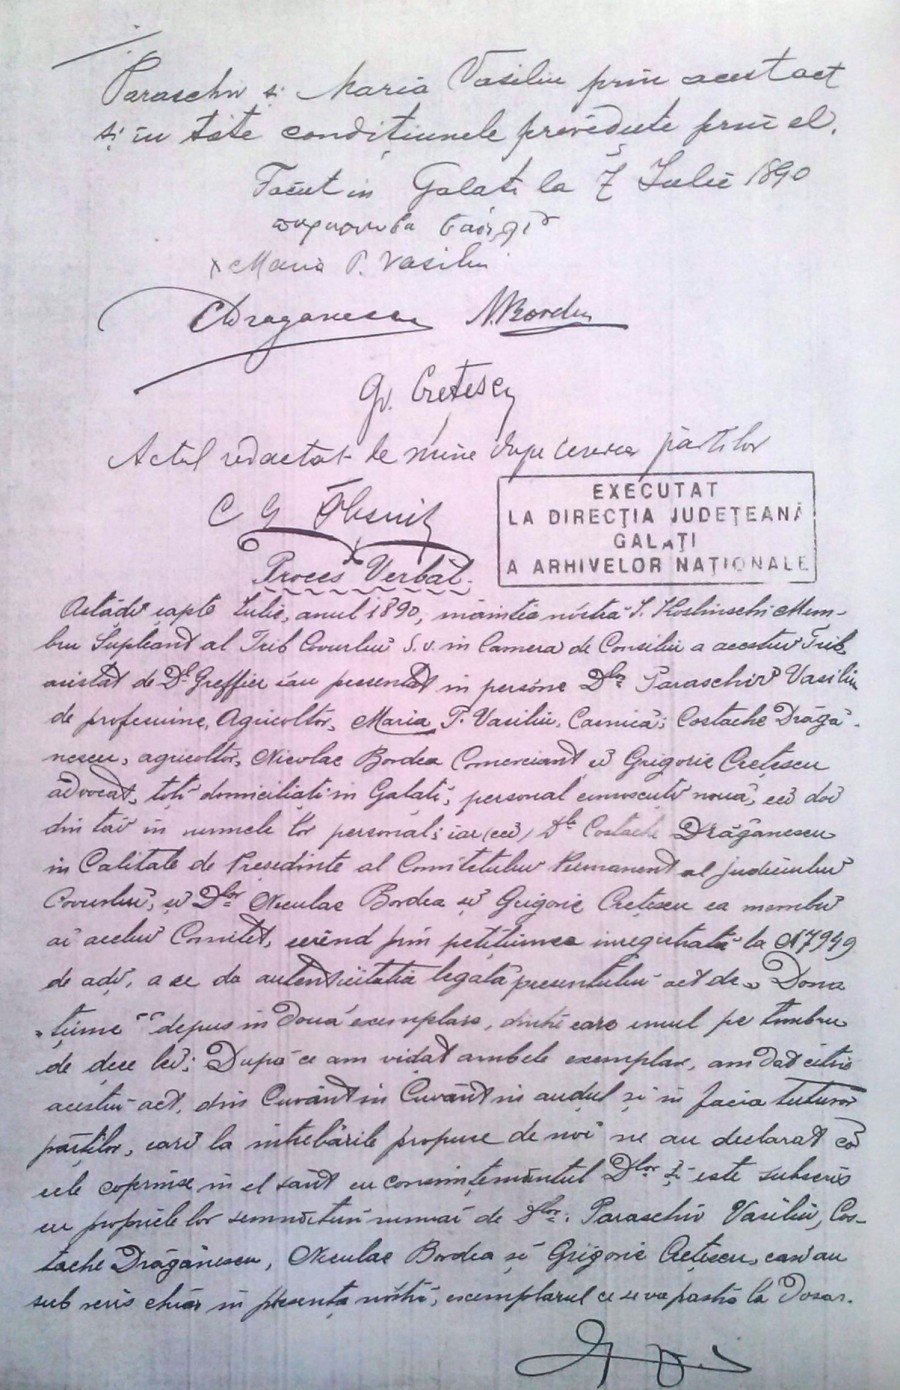 Paraschiv și Maria Vasiliu prin acest act
și cu tóte condițiunele prevědute prin el.
Făcut in Galati la 7 Iulie 1890
x Maria P. Vasiliu
CDraganescu N. Bordea
Gr. Crețescu
Actul redactat de mine dupe cererea părtilor
C G
EXECUTAT
LA DIRECȚIA JUDEȚEANĂ
GALAȚI
A ARHIVELOR NAȚIONALE
Proces Verbal.
Astădĭ șapte Iulie, anul 1890, inaintea nóstră Mem-
bru Supleant al Trib Covurluĭ S. v. in Camera de Consiliu a acestuĭ Trib.
asistat de Dl Greffier s'au presentat in persóne Dlor Paraschiv Vasiliu
de profesiune, Agricoltor, Maria P. Vasiliu, Casnică; Costache Drăgă-
nescu, agricoltor, Nicolae Bordea Comerciant și Grigorie Crețescu
advocat, toți domiciliați in Galatĭ, personal cunoscuți nouă, ceĭ doĭ
din tăi in numele lor personal; iar (ceĭ) Dl Costache Drăgănescu
in Calitate de Președinte al Comitetului Permanent al județuluĭ
Covurluĭ, și Dlor Niculae Bordea și Grigorie Crețescu ca membri
ai aceluĭ Comitet, cerênd prin petițiunea inregistrată la N 7949
de adĭ, a se da autenticitatea legală presentului act de „Dona
„țiune" depus in două exemplare, dintre care unul pe timbru
de dece leĭ; După ce am vidat ambele exemplare, am dat citire
acestui act, din Cuvânt in Cuvânt in audul și in facia tuturor
părților, cariĭ la intrebările propuse de noi ne au declarat că
cele coprinse in el sânt cu consimțemântul Dlor și este subscris
cu propriele lor semnăturĭ numai de Dlor: Paraschiv Vasiliu, Cos-
tache Drăgănescu, Niculae Bordea și Grigorie Crețescu, cari au
sub scris chiar in presența nóstră, exemplarul ce se va păstra la Dosar.